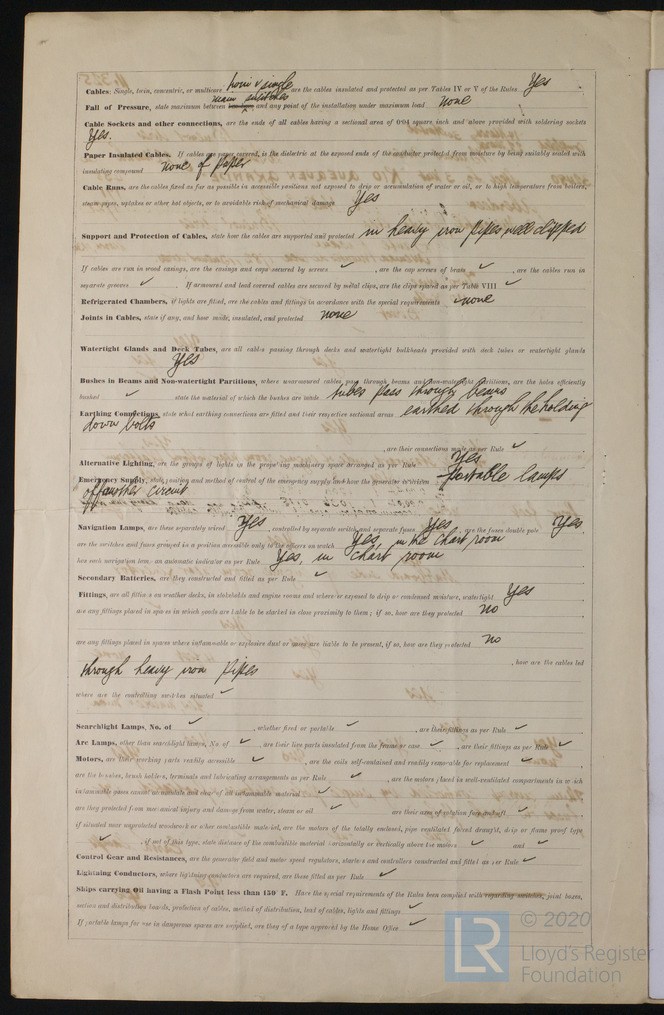 Cables: Single, twin, concentric, or multicore twin & single are the cables insulated and protected as per Tables IV or V of the Rules Yes
Fall of Pressure, state maximum between main switches and any point of the installation under maximum load none
Cable Sockets and other connections, are the ends of all cables having a sectional area of 0·04 square inch and above provided with soldering sockets
Yes.
Paper Insulated Cables. If cables are paper covered, is the dielectric at the exposed ends of the conductor protected from moisture by being suitably sealed with
insulating compound none of paper
Cable Runs, are the cables fixed as far as possible in accessible positions not exposed to drip or accumulation of water or oil, or to high temperature from boilers,
steam pipes, uptakes or other hot objects, or to avoidable risk of mechanical damage Yes
Support and Protection of Cables, state how the cables are supported and protected in heavy iron pipes well clipped
If cables are run in wood casings, are the casings and caps secured by screws ✓ , are the cap screws of brass ✓ , are the cables run in
separate grooves ✓ . If armoured and lead covered cables are secured by metal clips, are the clips spaced as per Table VIII ✓
Refrigerated Chambers, if lights are fitted, are the cables and fittings in accordance with the special requirements none
Joints in Cables, state if any, and how made, insulated, and protected none
Watertight Glands and Deck Tubes, are all cables passing through decks and watertight bulkheads provided with deck tubes or watertight glands
Yes
Bushes in Beams and Non-watertight Partitions, where unarmoured cables pass through beams and non-watertight partitions, are the holes efficiently
bushed ✓ state the material of which the bushes are made tubes pass through beams
Earthing Connections, state what earthing connections are fitted and their respective sectional areas earthed through the holding
down bolts
, are their connections made as per Rule ✓
Alternative Lighting, are the groups of lights in the propelling machinery space arranged as per Rule Yes
Emergency Supply, state position and method of control of the emergency supply and how the generator is driven Portable lamps
off another circuit
Navigation Lamps, are these separately wired Yes , controlled by separate switch and separate fuses Yes , are the fuses double pole Yes.
are the switches and fuses grouped in a position accessible only to the officers on watch Yes, in the chart room
has each navigation lamp an automatic indicator as per Rule Yes, in chart room
Secondary Batteries, are they constructed and fitted as per Rule ✓
Fittings, are all fittings on weather decks, in stokeholds and engine rooms and wherever exposed to drip or condensed moisture, watertight Yes
are any fittings placed in spaces in which goods are liable to be stacked in close proximity to them; if so, how are they protected no
are any fittings placed in spaces where inflammable or explosive dust or gases are liable to be present, if so, how are they protected no
, how are the cables led
through heavy iron pipes
where are the controlling switches situated ✓
Searchlight Lamps, No. of ✓ , whether fixed or portable ✓ , are their fittings as per Rule ✓
Arc Lamps, other than searchlight lamps, No. of ✓ , are their live parts insulated from the frame or case ✓ , are their fittings as per Rule ✓
Motors, are their working parts readily accessible ✓ , are the coils self-contained and readily removable for replacement ✓ ,
are the brushes, brush holders, terminals and lubricating arrangements as per Rule ✓ , are the motors placed in well-ventilated compartments in which
inflammable gases cannot accumulate and clear of all inflammable material ✓ ,
are they protected from mechanical injury and damage from water, steam or oil ✓ are their axes of rotation fore and aft ✓
if situated near unprotected woodwork or other combustible material, are the motors of the totally enclosed, pipe ventilated forced draught, drip or flame proof type
✓ , if not of this type, state distance of the combustible material horizontally or vertically above the motors ✓ and ✓
Control Gear and Resistances, are the generator field and motor speed regulators, starters and controllers constructed and fitted as per Rule ✓
Lightning Conductors, where lightning conductors are required, are these fitted as per Rule ✓
Ships carrying Oil having a Flash Point less than 150° F. Have the special requirements of the Rules been complied with regarding switches, joint boxes,
section and distribution boards, protection of cables, method of distribution, lead of cables, lights and fittings ✓
If portable lamps for use in dangerous spaces are supplied, are they of a type approved by the Home Office ✓
LR
© 2020
Lloyd's Register
Foundation